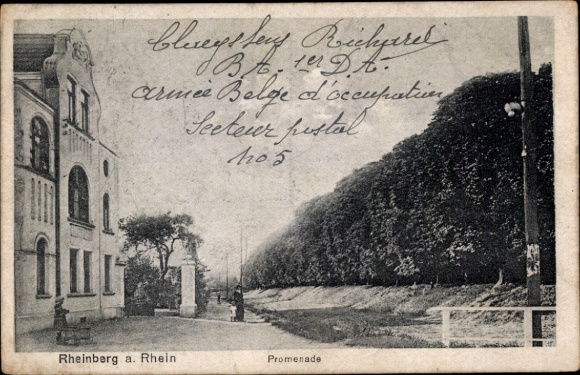 Richard
Bt. 1er D.A.
Armée Belge d'occupation
Secteur postal
no 5
Rheinberg a. Rhein
Promenade